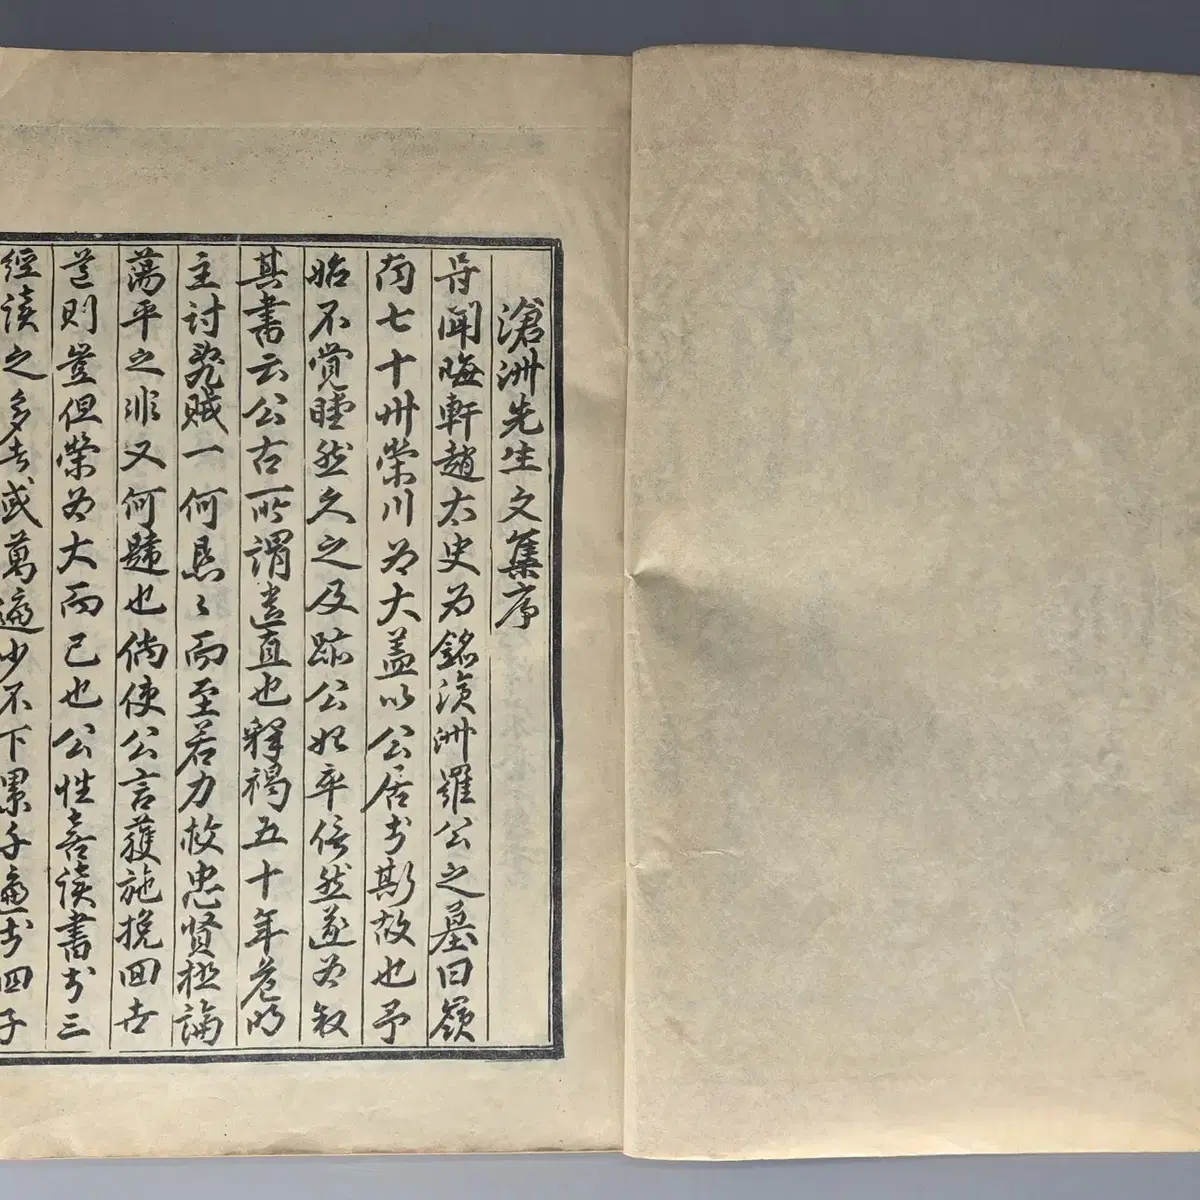 滄洲先生文集序
聞晦軒趙太史为銘滄洲羅公之墓曰嶺
南七十州榮川为大盖以公居於斯故也予
始不覺瞠然久之及跡公始卒然遂为叙
其書云公古所謂遺直也釋褐五十年危明
主討亂賊一何懇〻而至若力救忠賢極論
蕩平之非又何韙也倘使公言獲施挽回世
道則豈但榮为大而已也公性喜读書於三
經读之多者或萬遍少不下累千遍於四子